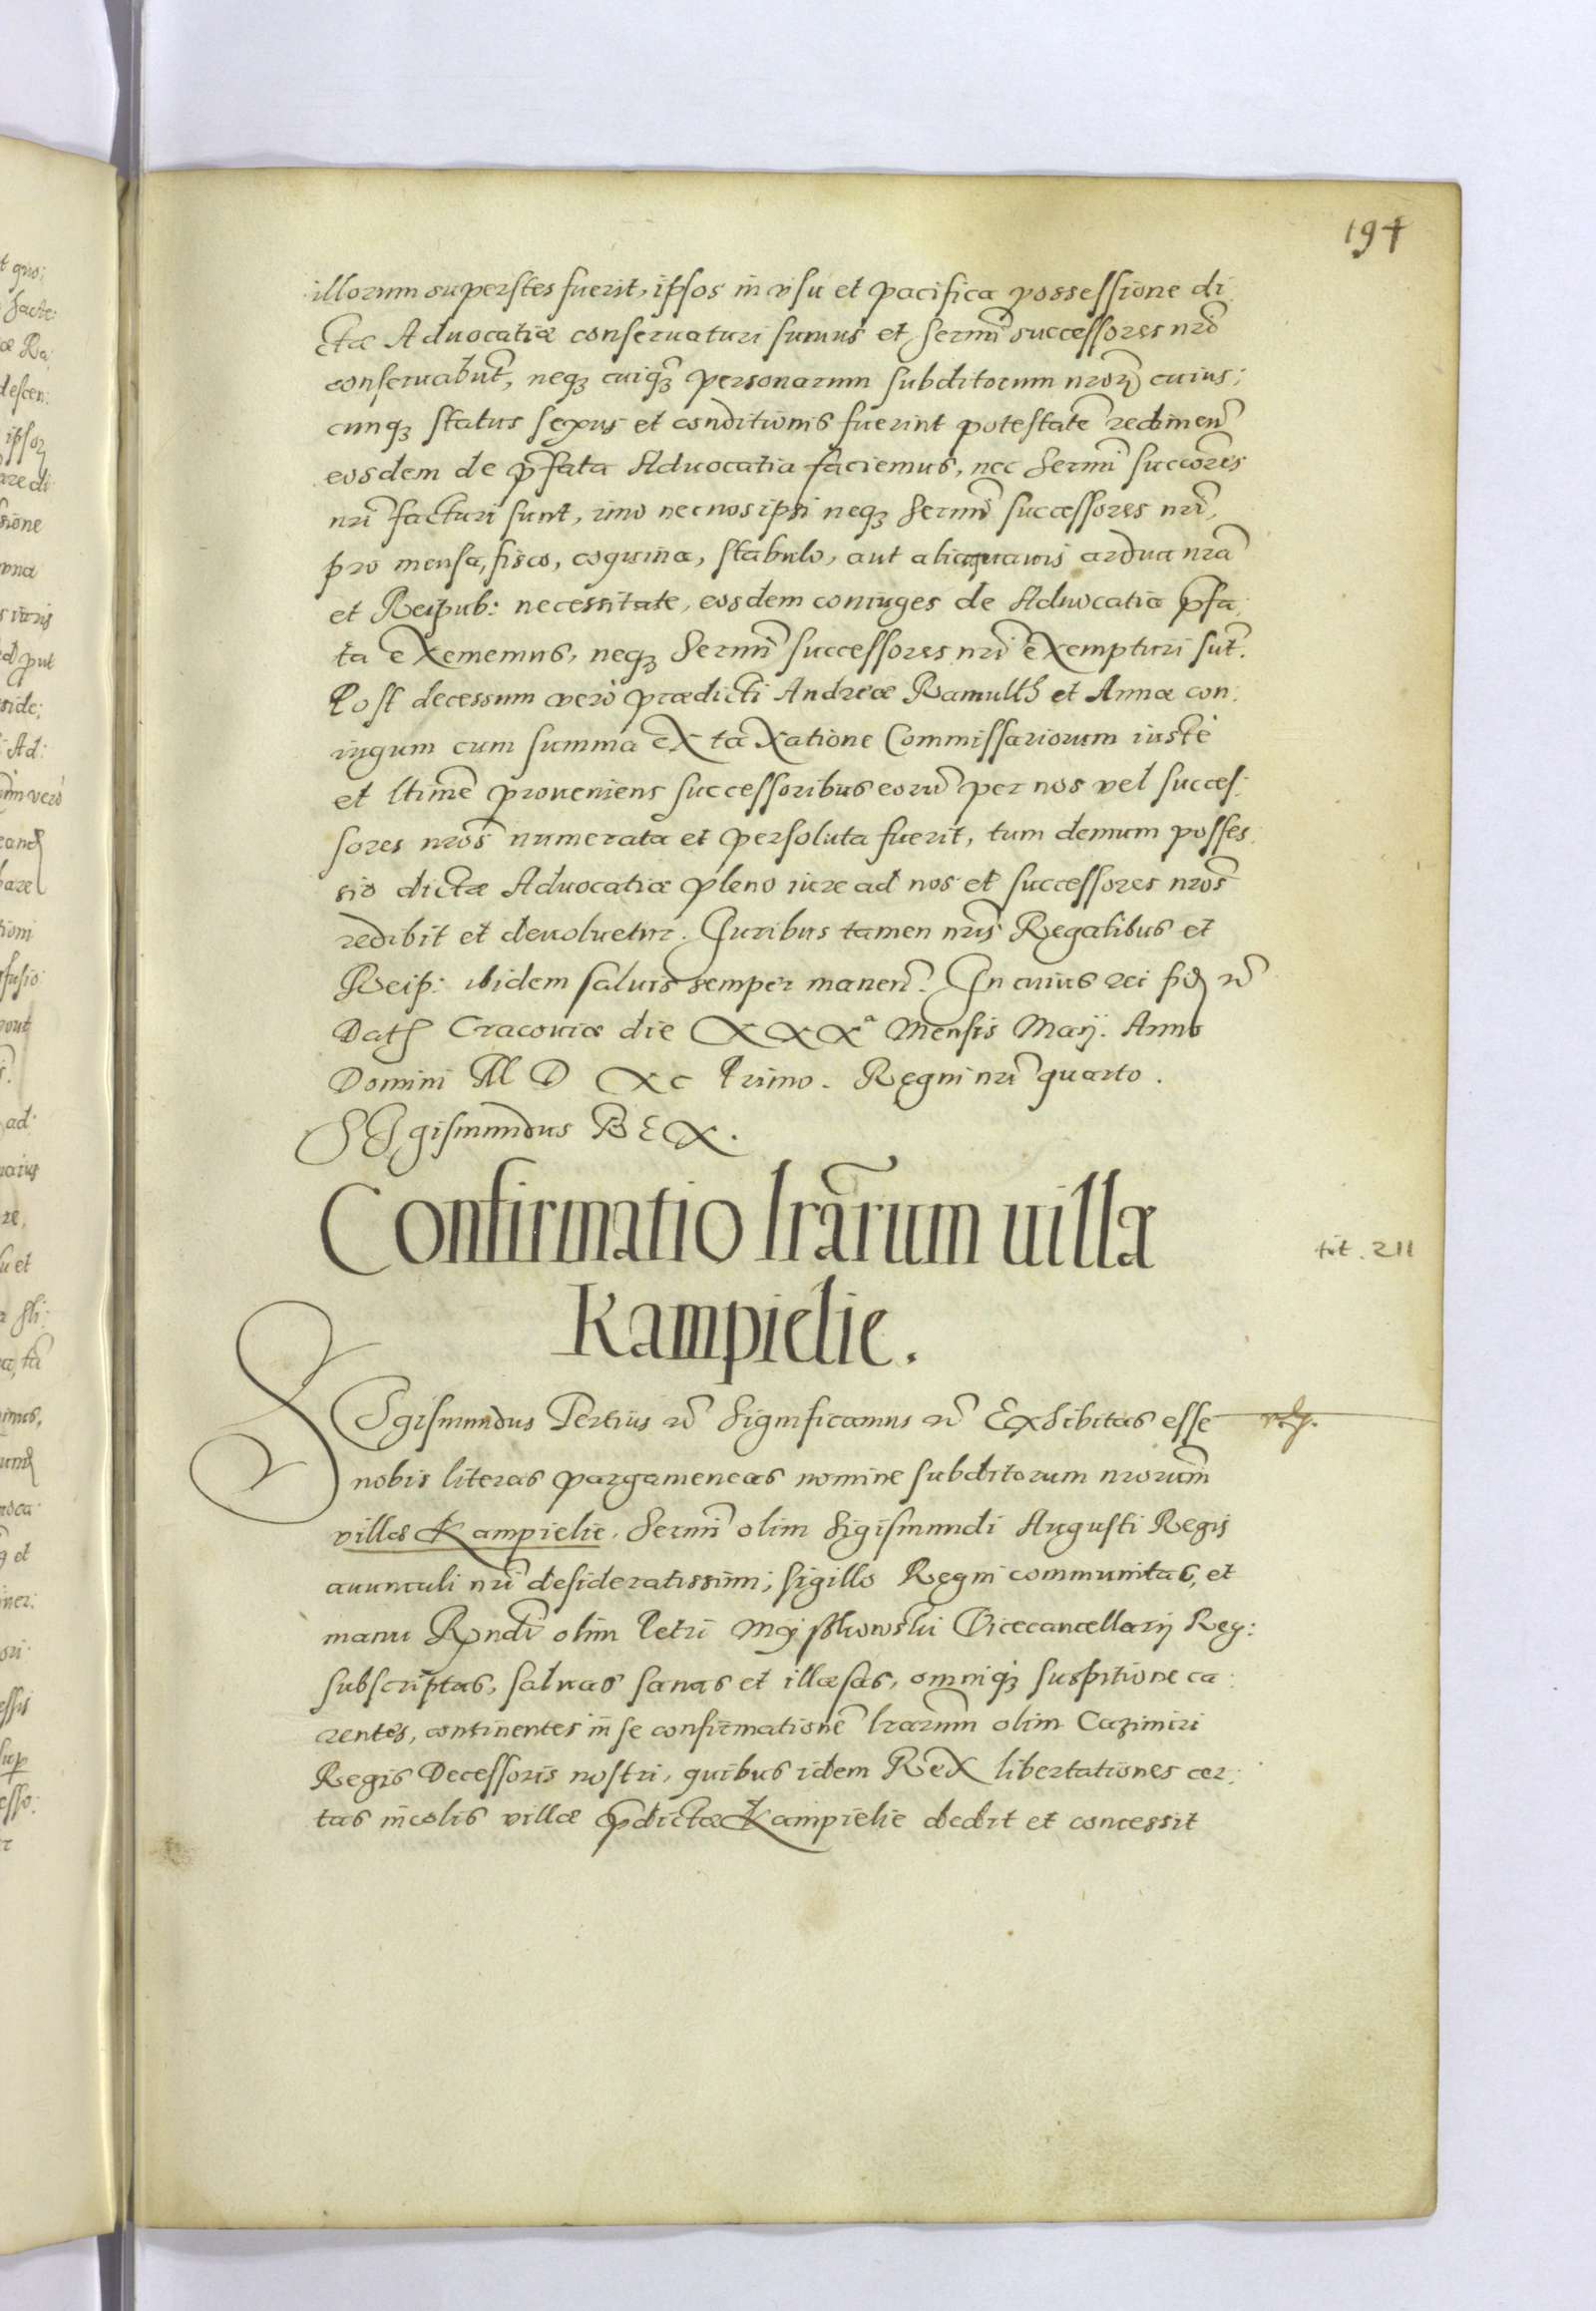 194
illorum superstes fuerit, ipsos in vsu et pacifica possessione di
ctæ Aduocatiæ conseruaturi sumus et sermi successores nri
conseruabũt, neqꝫ cuiqꝫ personarum subditorum nrorũ cuius;
cunqꝫ status sexus et conditionis fuerint potestatẽ redimeñ
eosdem de p̃fata Aduocatia faciemus, nec Sermi succores
nri facturi sunt, imo nec nos ipsi neqꝫ Sermi successores nri,
pro mensa, fisco, coquina, stabulo, aut aliaquauis ardua nra
et Reipub: necessitate, eosdem coniuges de Aduocatia p̃fa:
ta eXememus, neqꝫ Sermi successores nri eXempturi sũt.
Post decessum verò prædicti Andreæ Ramulth et Annæ con:
iugum cum summa eX taXatione Commissariorum iustè
et ltimẽ proueniens successoribus eorũ per nos vel succes:
sores nros numerata et persoluta fuerit, tum demum posses
sio dictæ Aduocatiæ pleno iure ad nos et successores nros
redibit et deuoluetur. Iuribus tamen nris Regalibus et
Reip: ibidem saluis semper maneñ. In cuius rei fid
Dat Cracouiæ die XXXª Mensis Maij. Anno
Domini M D XC Primo. Regni nri quarto.
SIgismundus REX.
Confirmatio lrarum uillæ
Kampielie.
tit. 211
SIgismundus Tertius Significamus Exhibitas esse
nobis literas pargameneas nomine subditorum nrorum
villæ Kampielie. Sermi olim Sigismundi Augusti Regis
auunculi nri desideratissimi; sigillo Regni communitas, et
manu Rndi olim Petri Myszkowski Vicecancellarij Reg:
subscriptas, saluas sanas et illæsas, omniqꝫ suspitione ca:
rentes, continentes in se confirmationẽ lrarum olim Cazimiri
Regis Decessoris nostri, quibus idem ReX libertationes cer:
tas incolis villæ p̃dictæ Kampielie dedit et concessit